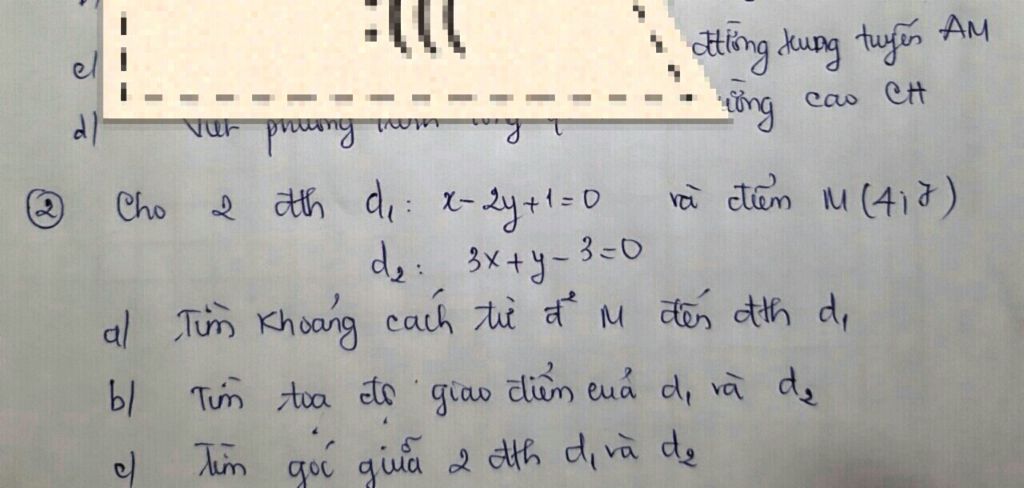 :(((
c) đường trung tuyến AM
d) Viết phương cao CH
② Cho 2 đth d₁: x-2y+1=0 và điểm M(4;7)
d₂: 3x+y-3=0
a) Tìm khoảng cách từ đ² M đến đth d₁
b) Tìm tọa độ giao điểm của d₁ và d₂
c) Tìm góc giữa 2 đth d₁ và d₂